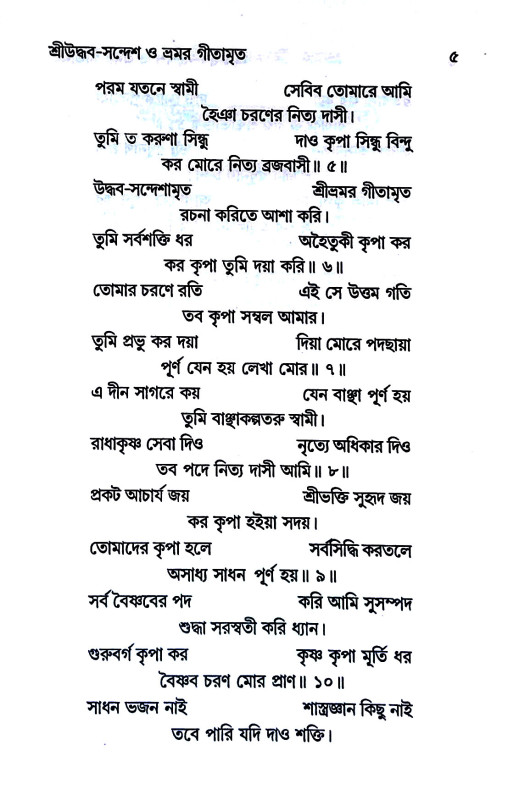 শ্রীউদ্ধব-সন্দেশ ও ভ্রমর গীতামৃত ৫
পরম যতনে স্বামী সেবিব তোমারে আমি
হৈঞা চরণের নিত্য দাসী।
তুমি ত করুণা সিন্ধু দাও কৃপা সিন্ধু বিন্দু
কর মোরে নিত্য ব্রজবাসী॥ ৫॥
উদ্ধব-সন্দেশামৃত শ্রীভ্রমর গীতামৃত
রচনা করিতে আশা করি।
তুমি সর্বশক্তি ধর অহৈতুকী কৃপা কর
কর কৃপা তুমি দয়া করি॥ ৬॥
তোমার চরণে রতি এই সে উত্তম গতি
তব কৃপা সম্বল আমার।
তুমি প্রভু কর দয়া দিয়া মোরে পদছায়া
পূর্ণ যেন হয় লেখা মোর॥ ৭॥
এ দীন সাগরে কয় যেন বাঞ্ছা পূর্ণ হয়
তুমি বাঞ্ছাকল্পতরু স্বামী।
রাধাকৃষ্ণ সেবা দিও নৃত্যে অধিকার দিও
তব পদে নিত্য দাসী আমি॥ ৮॥
প্রকট আচার্য জয় শ্রীভক্তি সুহৃদ জয়
কর কৃপা হইয়া সদয়।
তোমাদের কৃপা হলে সর্বসিদ্ধি করতলে
অসাধ্য সাধন পূর্ণ হয়॥ ৯॥
সর্ব বৈষ্ণবের পদ করি আমি সুসম্পদ
শুদ্ধা সরস্বতী করি ধ্যান।
গুরুবর্গ কৃপা কর কৃষ্ণ কৃপা মূর্তি ধর
বৈষ্ণব চরণ মোর প্রাণ॥ ১০॥
সাধন ভজন নাই শাস্ত্রজ্ঞান কিছু নাই
তবে পারি যদি দাও শক্তি।